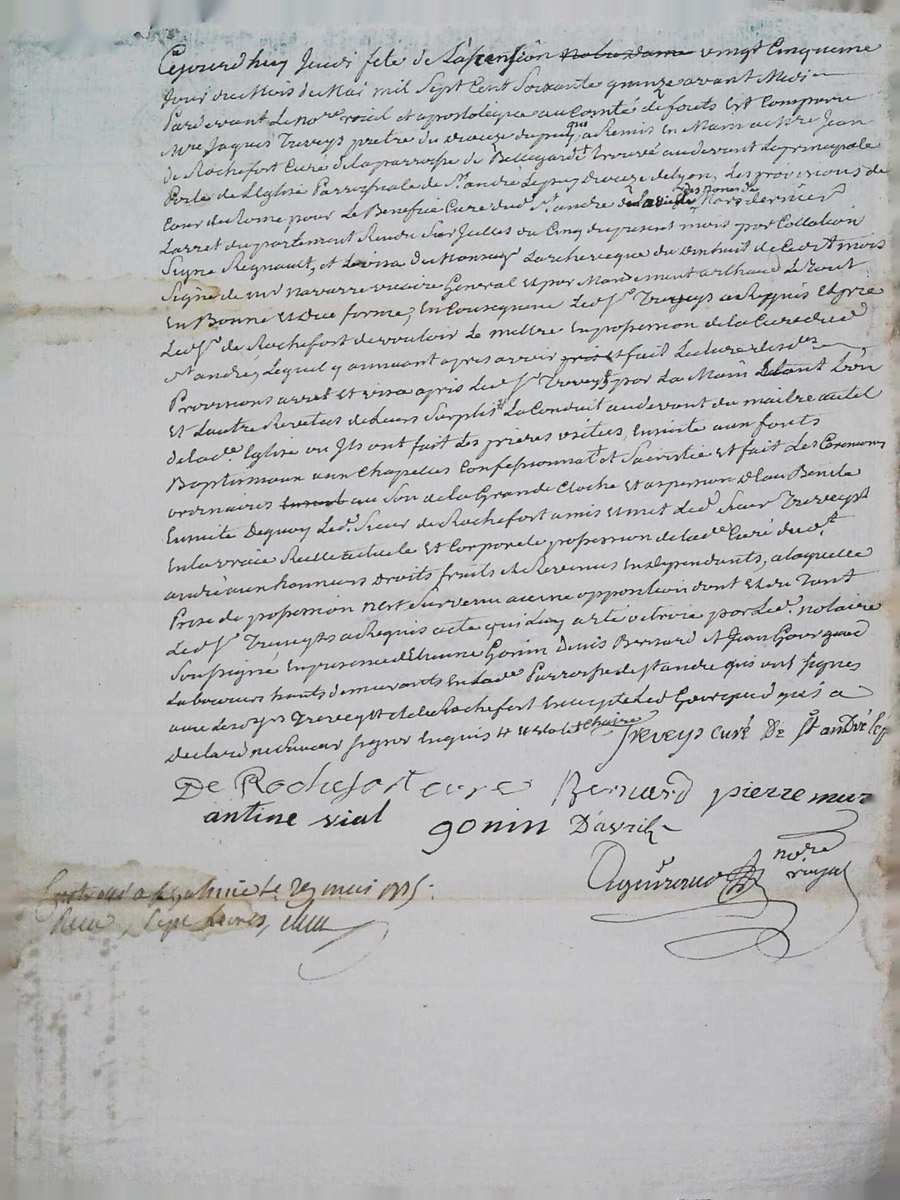 Cejourd'huy Jeudi fete de L'assension notre Dame vingt Cinqieme
Jour du Mois de Mai mil Sept Cent Soixante quinze avant Midi
Pardevant Le nore roial et apostolique au Comté de forets Est Comparu
Mre Jaques Treveys pretre du dioceze dupuy qui a Remis En Main a Mre Jean
de Rochefort Curé de la parroisse de Bellegarde trouvé audevant La principale
Porte de L'Eglise Parroissiale de St andré Lepuy Dioceze de Lyon, Les provisions de
Cour de Rome pour Le Benefice Cure dud. St andré Mars dernier
L'arret du parlement Rendu Sur Juelles du Cinq du present mois par Collation
Signé Regnault, et Levisa de Monseigr L'archeveque du de Cedt mois
Signé de mr navarre vicaire General Et par Mandement Le tout
En Bonne Et Due forme, En Consequence Led. Sr Treveys a Requis Et prié
Led. Sr de Rochefort de vouloir Le mettre En possession de la Cure dud.
St andré, Lequel y annuant apres avoir pris et fait Lecture desdes
Provisions arret et visa a pris Led. Sr Treveys par La Main Etant L'un
Et L'autre Revetus de Leurs Surplis Et La Conduit audevant du maitre autel
de lade Eglise ou Ils ont fait Les prieres usitées, Ensuite aux fonts
Baptismaux aux Chapelles Confessionnal et Sacristie Et fait Les Ceremonies
ordinaires au Son de la Grande Cloche Et aspersion d'Eau Benite
Ensuite Dequoy Led. Sieur de Rochefort a mis et met Led. Sieur Treveys
En la vraie Reelle actuelle Et Corporelle possession de lade Cure de St
andré aux honneurs Droits fruits et Revenus En dependants, a laquelle
Prise de possession n'Est Survenu aucune opposition dont Et du tout
Led. Sr Treveys a Requis acte qui Luy a eté octroié par Led. notaire
Soussigné En presence d'Etienne Gonin Denis Bernard et Jean Gourgaud
Laboureurs habts demeurants En lade Parroisse de St andré qui ont signés
avec Lesd. Srs Treveys et de Rochefort Excepté Led. Gourgaud qui a
declaré ne Savoir Signer Enquis
Treveys curé De St andré le p
De Rochefort curé Bernard pierre mur
antine vial gonin D'avril
nore royal
a St galmier le 29 mai 1775:
Recu, Sept Livres,